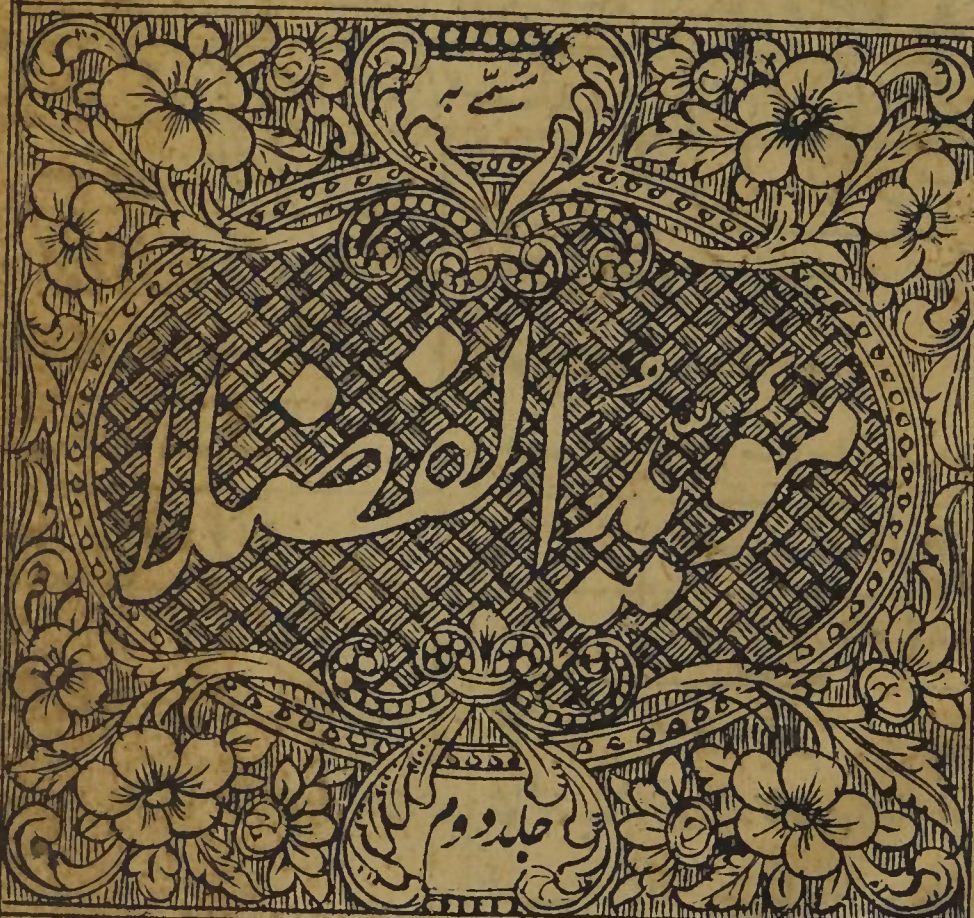 مسمّٰی بہ
مؤیّدُ الفضلا
جلد دوم